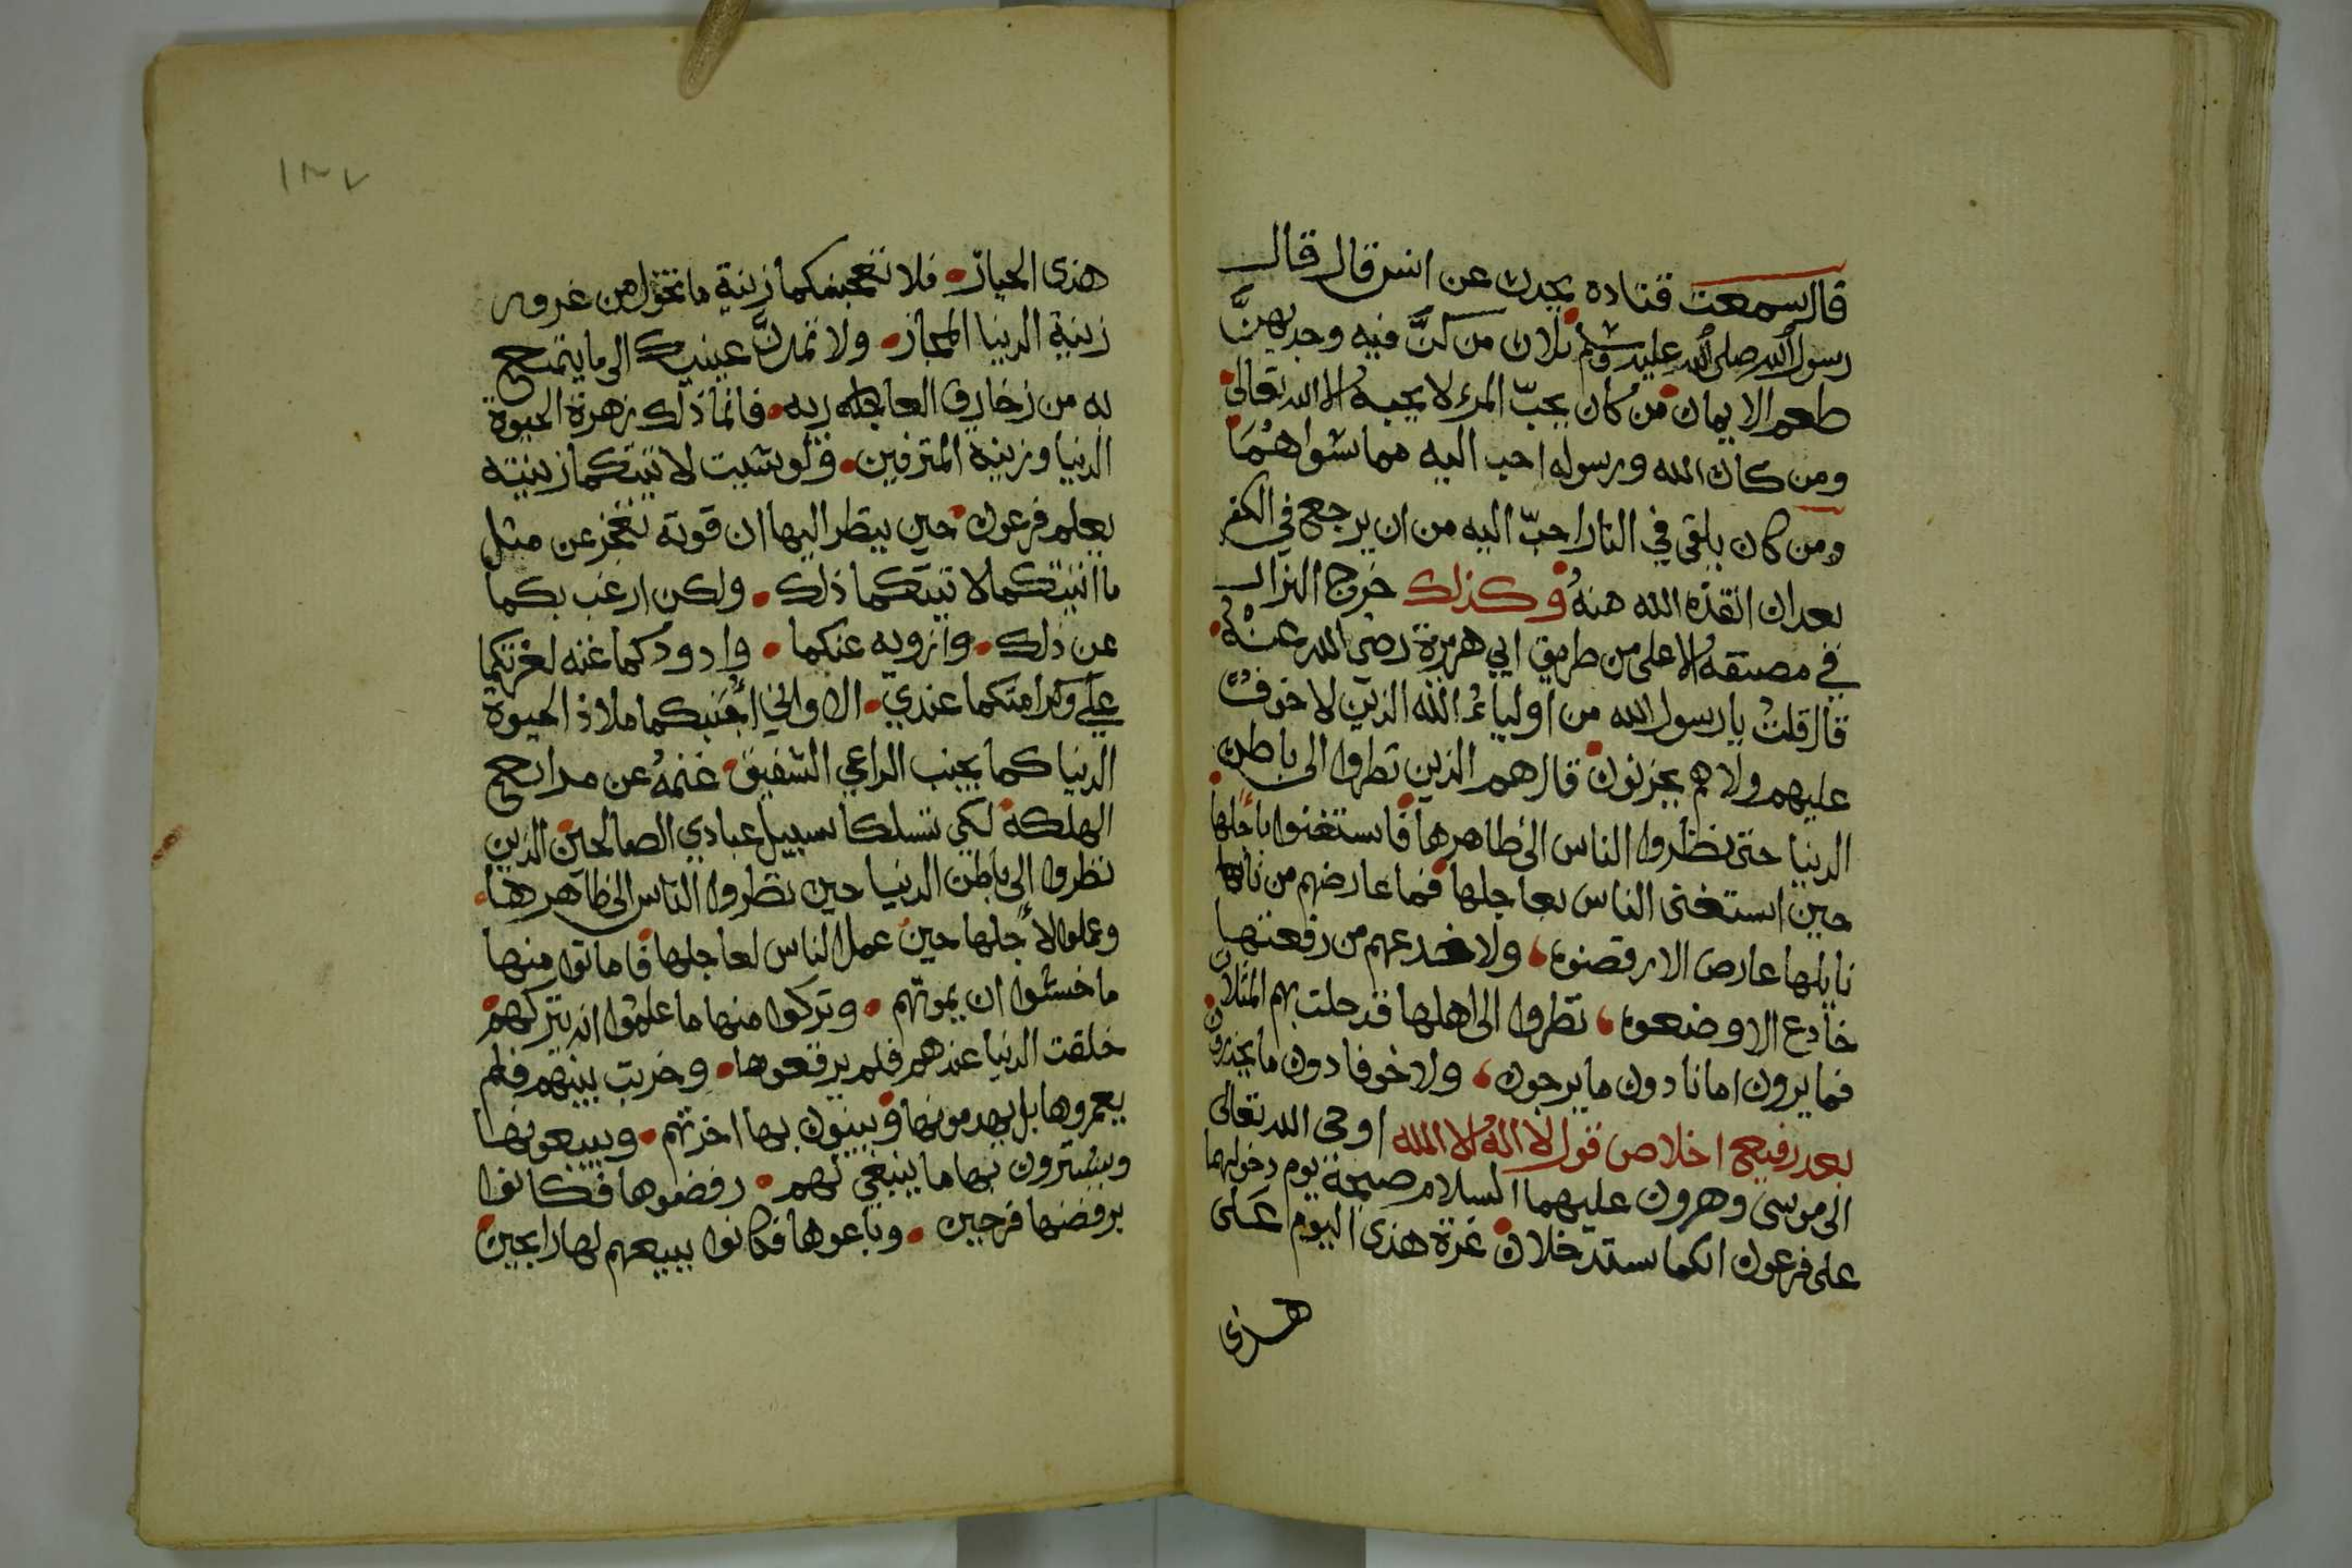 قال سمعت قتادة يحدث عن انس قال قال
رسول الله صلى الله عليه وسلم ثلاث من كنَّ فيه وجد بهنَّ
طعم الايمان من كان يحبّ المرء لا يحبه الا الله تعالى
ومن كان الله ورسوله احب اليه مما سواهُمَا
ومن كان يلقى في النار احبّ اليه من ان يرجع في الكفر
بعد ان انقذه الله منهُ وكذلك خرج البزار
في الاعلى من طريق ابي هريرة رضى الله عنهُ
قال قلتُ يا رسول الله من اولياءُ الله الذين لا خوفٌ
عليهم ولا هم يحزنون قال هم الذين نظروا الى باطن
الدنيا حتى نظروا الناس الى ظاهرها فاستغنوا باجلها
حين استغنى الناس بعاجلها فما عارضهم من
نايلها عارض الا رفضوه ولا خدعهم من رفعتها
خادع الا وضعوه نظروا الى اهلها قد حلت بهم المثلات
فما يرون امانا دون ما يرجون ولا خوفا دون ما يحذرون
بعد رفيع اخلاص قول لا اله الا الله اوحى الله تعالى
الى موسى وهرون عليهما السلام صبيحة يوم دخولهما
على فرعون انكما ستدخلان غرة هذى اليوم عَلى
هذى
١٢٧
هذى الحيان فلا تعجبنكما زينة ما تخول من غروره
زينة الدنيا المجاز ولا تمدنَّ عينيك الى ما يتمتع
به من زخارف العاجله ربه فانما ذلك زهرة الحيوة
الدنيا وزينة المترفين ولو شيت لاتيتكما زينته
يعلم فرعون حين ينظر اليها ان قوته تعجز عن مثل
ما اتيتكما لاتيتكما ذلك ولكن ارغب بكما
عن ذلك وازويه عنكما واذودكما عنه لعزتكما
علي وكرامتكما عندي الا واني اجنبكما ملاذ الحيوة
الدنيا كما يجنب الراعي الشفيق غنمهُ عن مراتع
الهلكة لكي تسلكا سبيل عبادي الصالحين الذين
نظروا الى باطن الدنيا حين نظروا الناس الى ظاهرها
وعملوا لاجلها حين عمل الناس لعاجلها فاماتوا منها
ما خشوا ان يموتهم وتركوا منها ما علموا انه يتركهم
خلقت الدنيا عندهم فلم يرقعوها وخربت بينهم فلم
يعمروها بل يهدمونها ويبنون بها اخرتهم ويبيعونها
ويشترون بها ما ينبغي لهم رفضوها فكانوا
برفضها فرحين وباعوها فكانوا ببيعهم لها رابحين